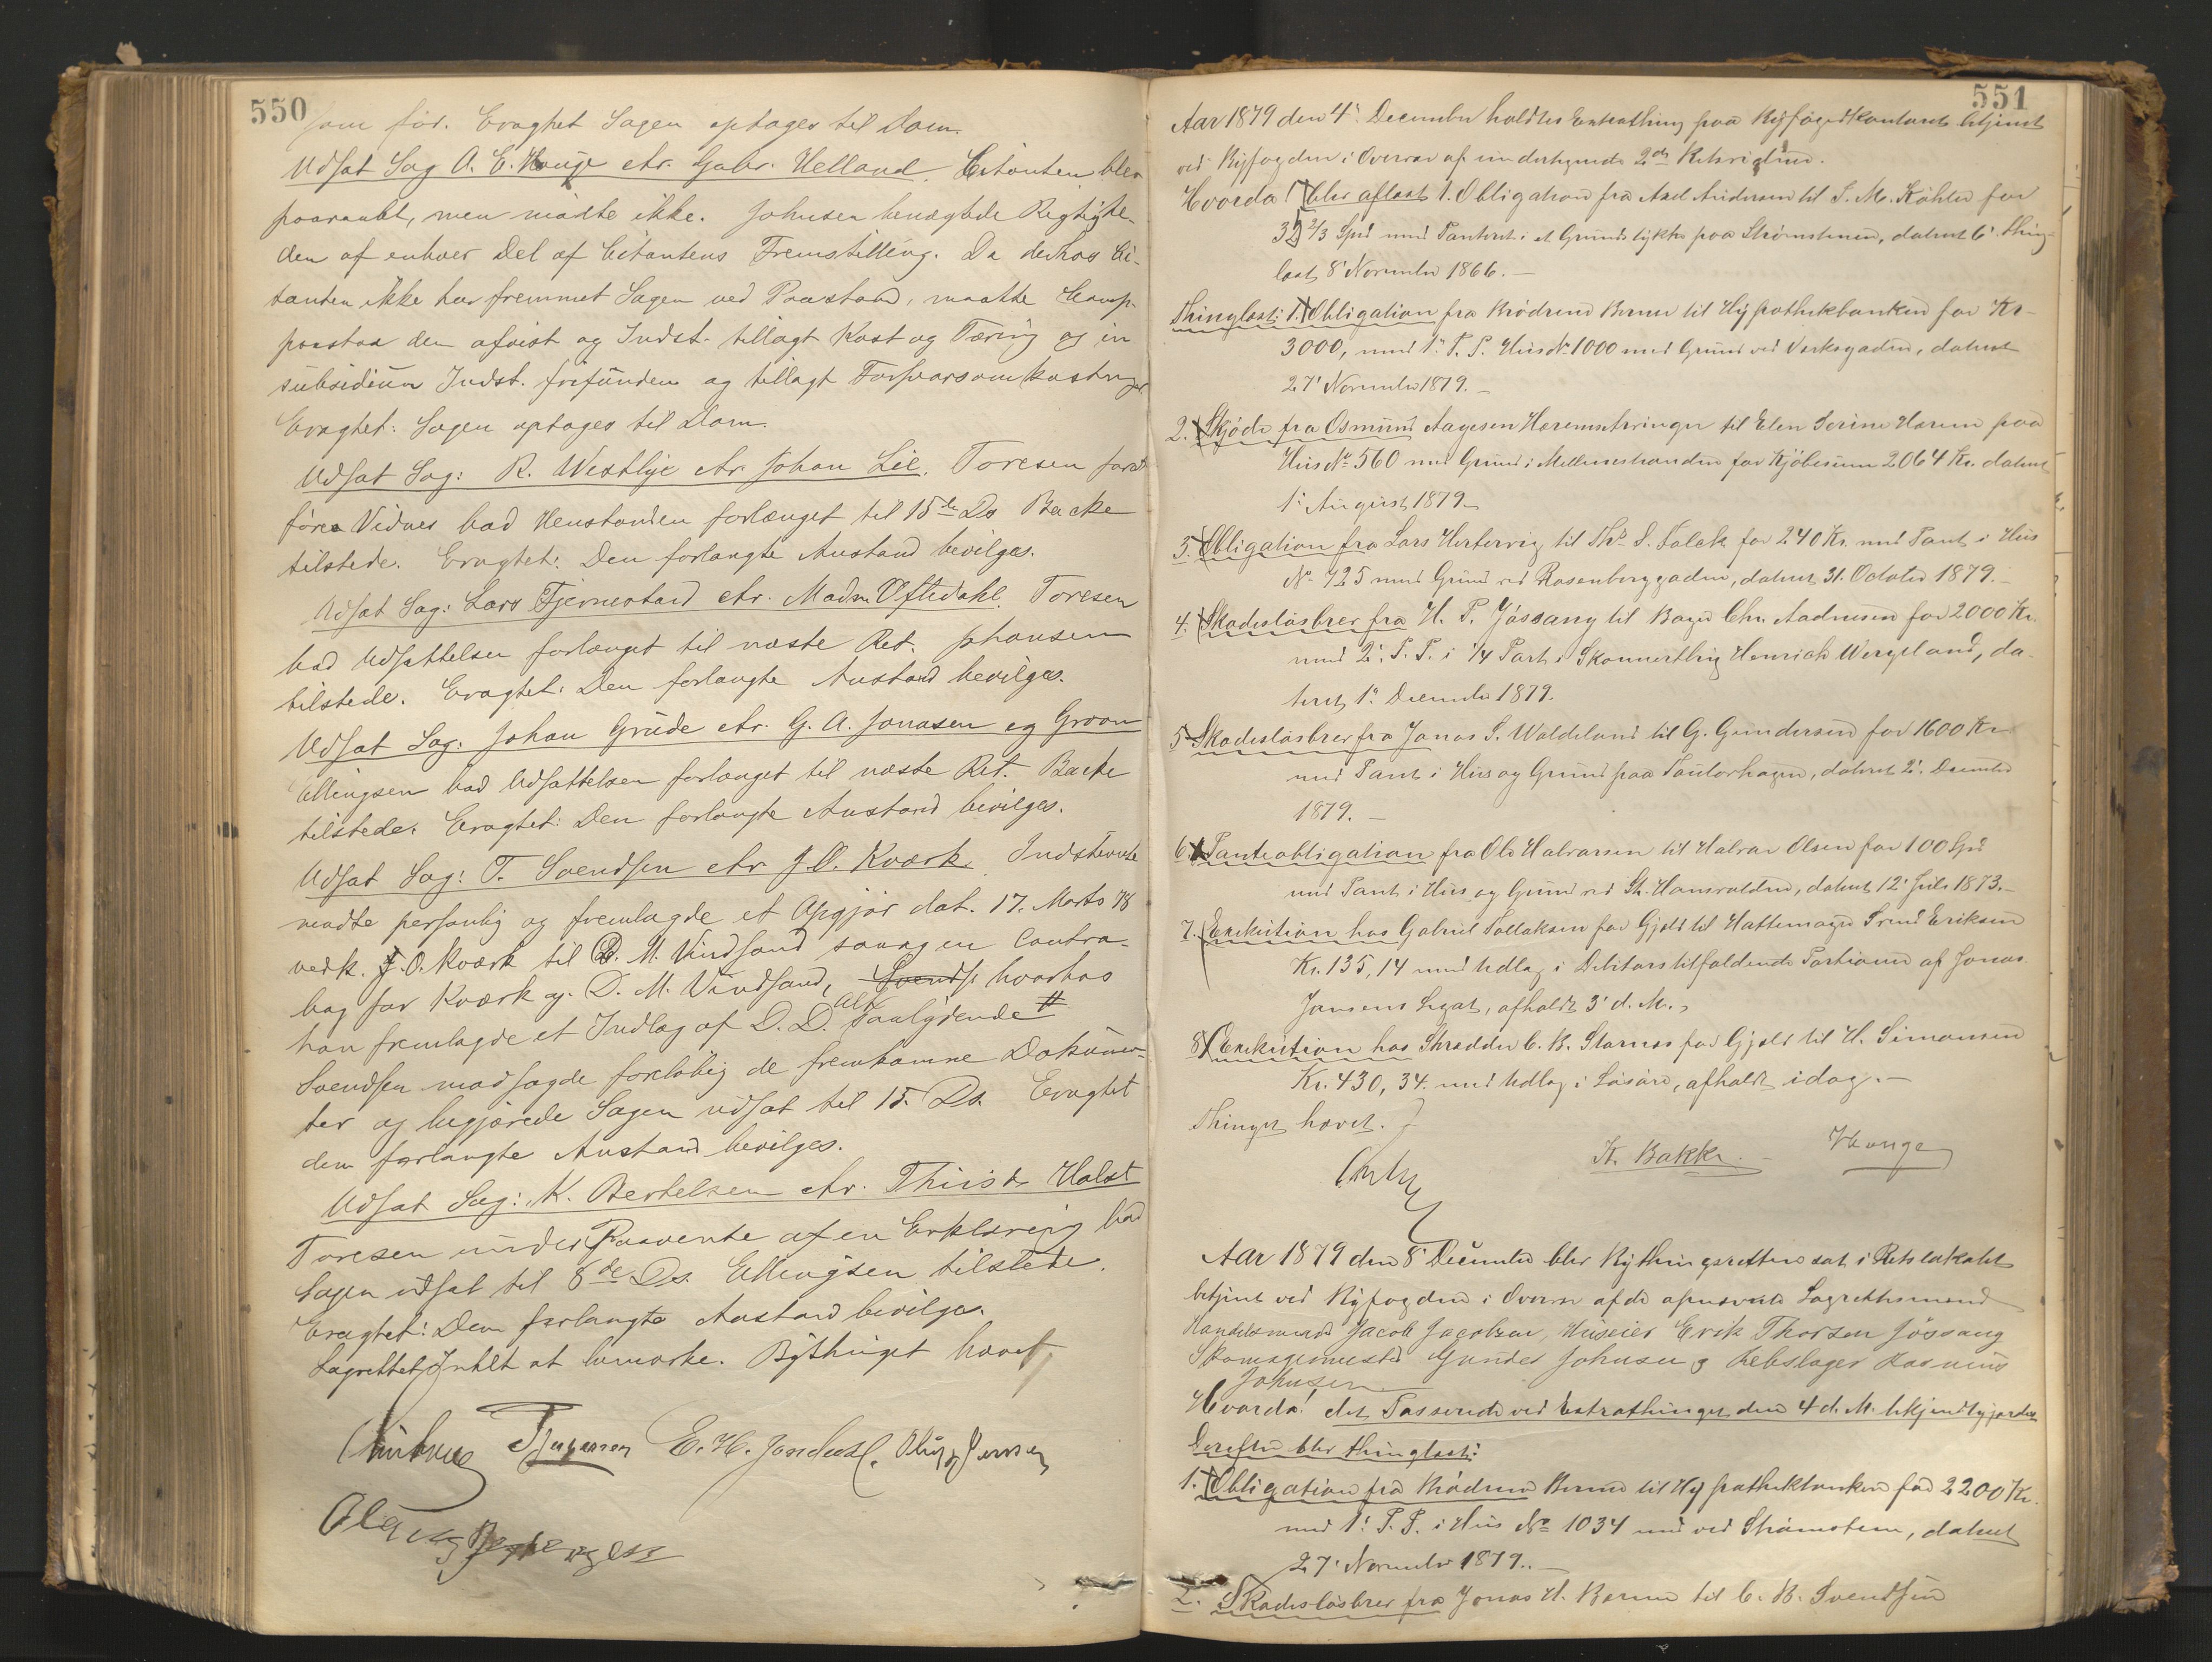 550
som før. Eragtet Sagen optages til Dom.
Udsat Sag A. E. Hauge ctr. Gabr. Helland. Citanten blev
paaraabt, men mødte ikke. Johnsen benægtede Rigtighe-
den af enhver Del af Citantens Fremstilling. Da derhos Ci-
tanten ikke har fremmet Sagen ved Paastand, maatte Comp.
paastaa den afvist og Indst. tillagt Kost og Tæring og in
subsidium Indst. frifunden og tillagt Forsvarsomkostninger
Eragtet: Sagen optages til Dom.
Udsat Sag: R. Westlye ctr. Johan Lie. Toresen forat
føre Vidner bad Henstanden forlænget til 15de Ds Backe
tilstede. Eragtet: Den forlangte Anstand bevilges.
Udsat Sag: Lars Tjernestad ctr. Madm Oftedahl. Toresen
bad Udsættelsen forlænget til næste Ret. Johansen
tilstede. Eragtet: Den forlangte Anstand bevilges.
Udsat Sag: Johan Grude ctr. G. A. Jonasen og Groom
Ellingsen bad Udsættelsen forlænget til næste Ret. Backe
tilstede. Eragtet: Den forlangte Anstand bevilges.
Udsat Sag: T. Svendsen ctr J. O. Kværk. Indstevnte
mødte personlig og fremlagde et Opgjør dat. 17. Marts 78
vedk. J. O. Kværk til D. M. Vindsand saavgen Contra-
bog for Kværk og D. M. Vindsand, Svends hvorhos
han fremlagde et Indlæg af D. D. Alt saalydende #
Svendsen modsagde foreløbig de fremkomne Dokumen-
ter og begjærede Sagen udsat til 15. Ds. Eragtet
den forlangte Anstand bevilges.
Udsat Sag: K. Bertelsen ctr. Thiis & Holst
Toresen under Paavente af en Erklæring bad
Sagen udsat til 8de Ds. Ellingsen tilstede.
Eragtet: Den forlangte Anstand bevilges.
Lagrettet Intet at bemærke. Bythinget hævet
E. H. Jondahl.
551
Aar 1879 den 4' December holdtes Extrathing paa Byfogedkontoret betjent
ved Byfogden i Overvær af undertegnede 2de Retsvidner.
Hvorda! blev aflæst 1. Obligation fra Axel Andersen til S. M. Køhler for
35 2/3 Spd med Panteret i et Grundstykke paa Strømstenen, dateret 6' thing-
læst 8' November 1866.—
Thinglæst: 1. Obligation fra Brødrene Berner til Hypothekbanken for Kr-
3000, med 1' P. P. Hus No 1000 med Grund ved Verksgaden, dateret
27' November 1879.—
2. Skjøde fra Osmund Aagesen til Elen Serine Harem paa
Hus No 560 med Grund i Mellemstranden for Kjøbesum 2064 Kr. dateret
1' August 1879.—
3. Obligation fra Lars Hertervig til Ths S. Falck for 240 Kr. med Pant i Hus
No 725 med Grund ved Rosenberggaden, dateret 31. October 1879.—
4. Skadesløsbrev fra H. P. Jøssang til Bager Chr. Aadnesen for 2000 Kr.
med 2' P. P. i 1/4 Part i Skonnertbrig Henrich Wergeland, da-
teret 1' December 1879.
5 Skadesløsbrev fra Jonas S. Waldeland til G. Gundersen for 1600 Kr
med Pant i Hus og Grund paa, dateret 2' December
1879.—
6. Panteobligation fra Ole Halvorsen til Halvor Olsen for 100 Spd
med Pant i Hus og Grund ved St. Hansvolden, dateret 12' Juli 1873.—
7. Exekution hos Gabriel Tollaksen for Gjæld til Hattemager Trend Eriksen
Kr. 135,14 med Udlæg i Debitors tilfaldende Portioner af Jonas
Jansens Legat, afholdt 3' d. M.,
8. Exekution hos Skrædder C. B. Starnes for Gjæld til H. Simonsen
Kr. 430,34. med Udlæg i Løsøre, afholdt idag.—
Thinget hævet.
K. Bakke. Hauge
Aar 1879 den 8' December blev Bythingsretten sat i Retslokalet
betjent ved Byfogden i Overvær af de opnævnte Lagrettesmænd
Handelsmand Jacob Jacobsen, Huseier Erik Thorsen Jøssang
Skomagermester Gunder Johnsen og Rebslager Rasmus
Johnsen
Hvorda! det Passerede ved Extrathinget den 4 d. M. bekjendtgjordes
Derefter blev thinglæst:
1. Obligation fra Brødrene Berner til Hypothekbanken for 2200 Kr.
med 1' P. P. i Hus No 1034 ved Strømsten, dateret
27' November 1879.—
2. Skadesløsbrev fra Jonas H. Berner til C. B. Svendsen